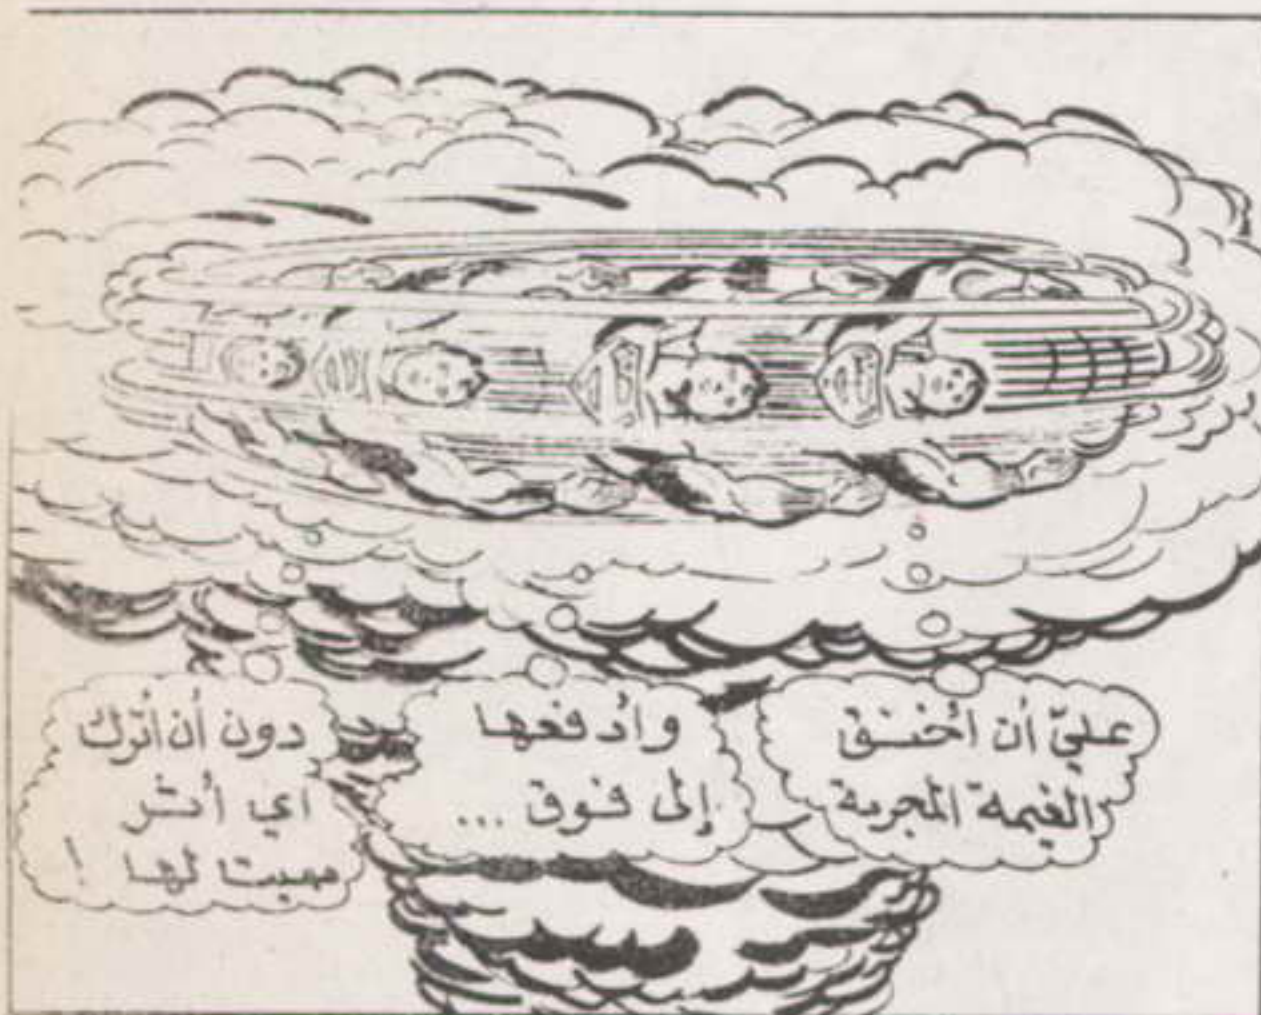 عليّ أن أخنق
الغيمة المجرمة
وأدفعها
إلى فوق ...
دون أن أترك
اي أثر
مميت لها !